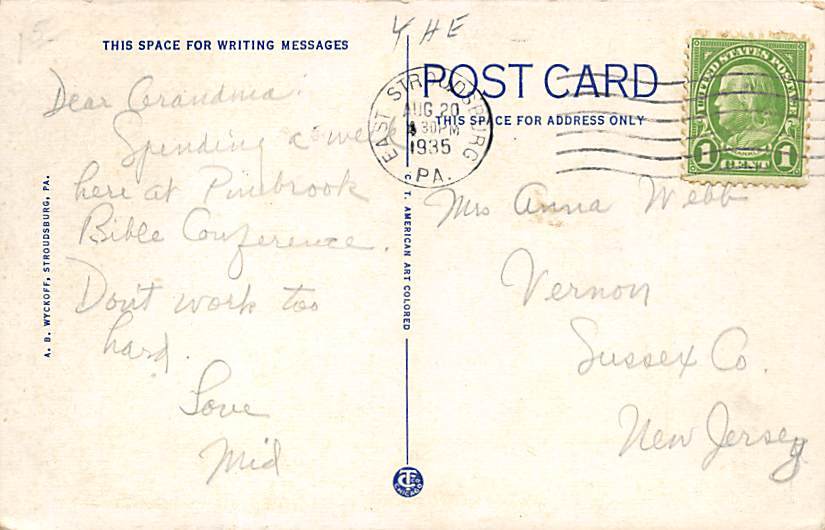 15
THIS SPACE FOR WRITING MESSAGES
Dear Grandma:
Spending a week
here at Pinebrook
Bible Conference.
Don't work too
hard.
Love
Mid
A. B. WYCKOFF, STROUDSBURG, PA.
C. T. AMERICAN ART COLORED
CHICAGO
POST CARD
THIS SPACE FOR ADDRESS ONLY
EAST STROUDSBURG
AUG 20
30PM
1935
PA.
UNITED STATES POSTAGE
1 CENT 1
Mrs Anna Webb
Vernon
Sussex Co.
New Jersey